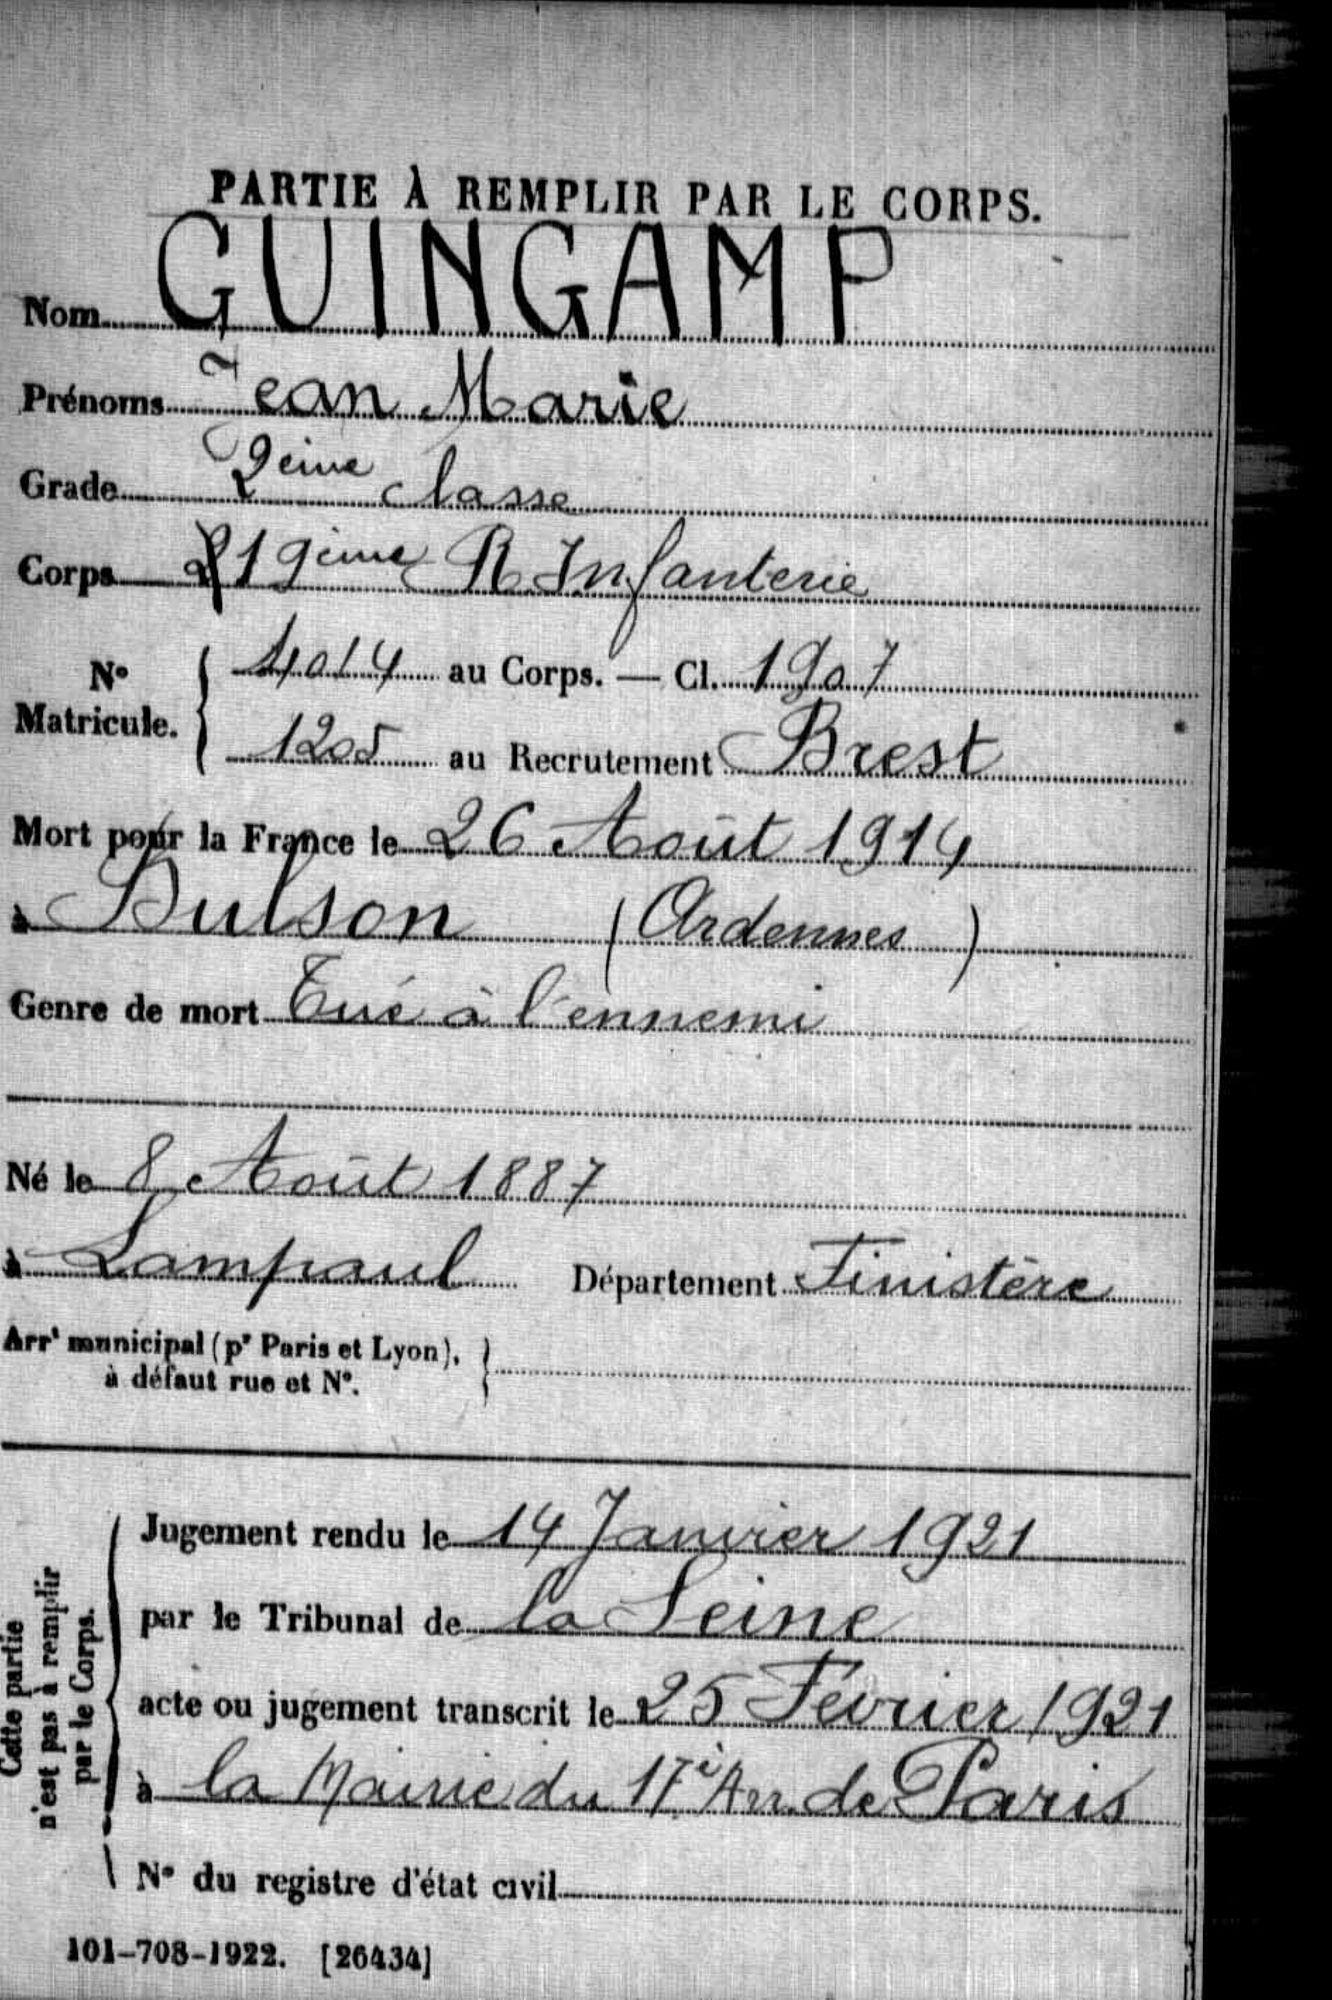 PARTIE À REMPLIR PAR LE CORPS.
Nom GUINGAMP
Prénoms Jean Marie
Grade 2ème classe
Corps 219ème R. Infanterie
N° Matricule. { 4014 au Corps. — Cl. 1907
1205 au Recrutement Brest
Mort pour la France le 26 Août 1914
à Bulson (Ardennes)
Genre de mort Tué à l'ennemi
Né le 8 Août 1887
à Lampaul Département Finistère
Arrt municipal (pr Paris et Lyon),
à défaut rue et N°.
Cette partie
n'est pas à remplir
par le Corps.
Jugement rendu le 14 Janvier 1921
par le Tribunal de la Seine
acte ou jugement transcrit le 25 Février 1921
à la Mairie du 17è Arr. de Paris
N° du registre d'état civil
101-708-1922. [26434]